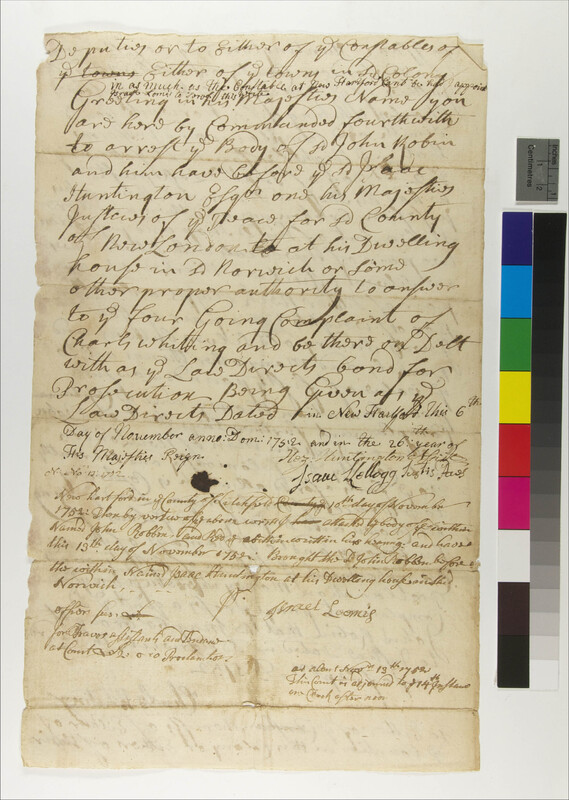 Deputies or to Either of ye Constables of
ye towns Either of ye towns in sd Colony
in as much as the Constable at New Hartford cant be had I appoint
Israel Lomis to Serve this
Greeting in his Majesties Name you
are here by Commanded fourthwith
to arrest ye Body of sd John Robin
and him have before ye sd Isaac
Huntington Esqr one his Majesties
Justices of ye Peace for sd County
of New London to at his Dwelling
house in sd Norwich or Some
other proper authority to answer
to ye four Going Complaint of
Charls whiting and be there on Delt
with as ye Law Directs bond for
Prosecution Being Given as ye
Law Directs Dated in New Hartford this 6th
Day of November anno: Dom: 1752 and in the 26th year of
His Majesties Reign
Isaac Kellogg Justis Peace
New hartford in ye County of Litchfield 10th day of November
1752 Then by vertue of ye above attacht ye body of ye within
Named John Robbin and Read within written in his hearing and have
this 13th day of November 1752: Brought the sd John Robbin before
the within Named Isaac Huntington at his Dwelling house in sd
Norwich
Israel Loomis
officer
for Travel
at Court
13th 1752
This Court is adjorned to ye 14th Instant